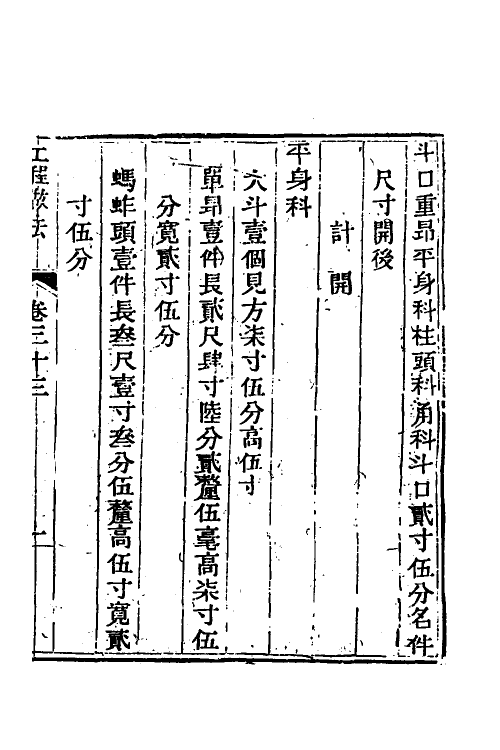 斗口重昂平身科柱頭科角科斗口貳寸伍分名件
尺寸開後
計開
平身科
大斗壹個見方柒寸伍分高伍寸
單昂壹件長貳尺肆寸陸分貳釐伍毫高柒寸伍
分寬貳寸伍分
螞蚱頭壹件長叁尺壹寸叁分伍釐高伍寸寬貳
寸伍分
工程做法
卷三十三
一